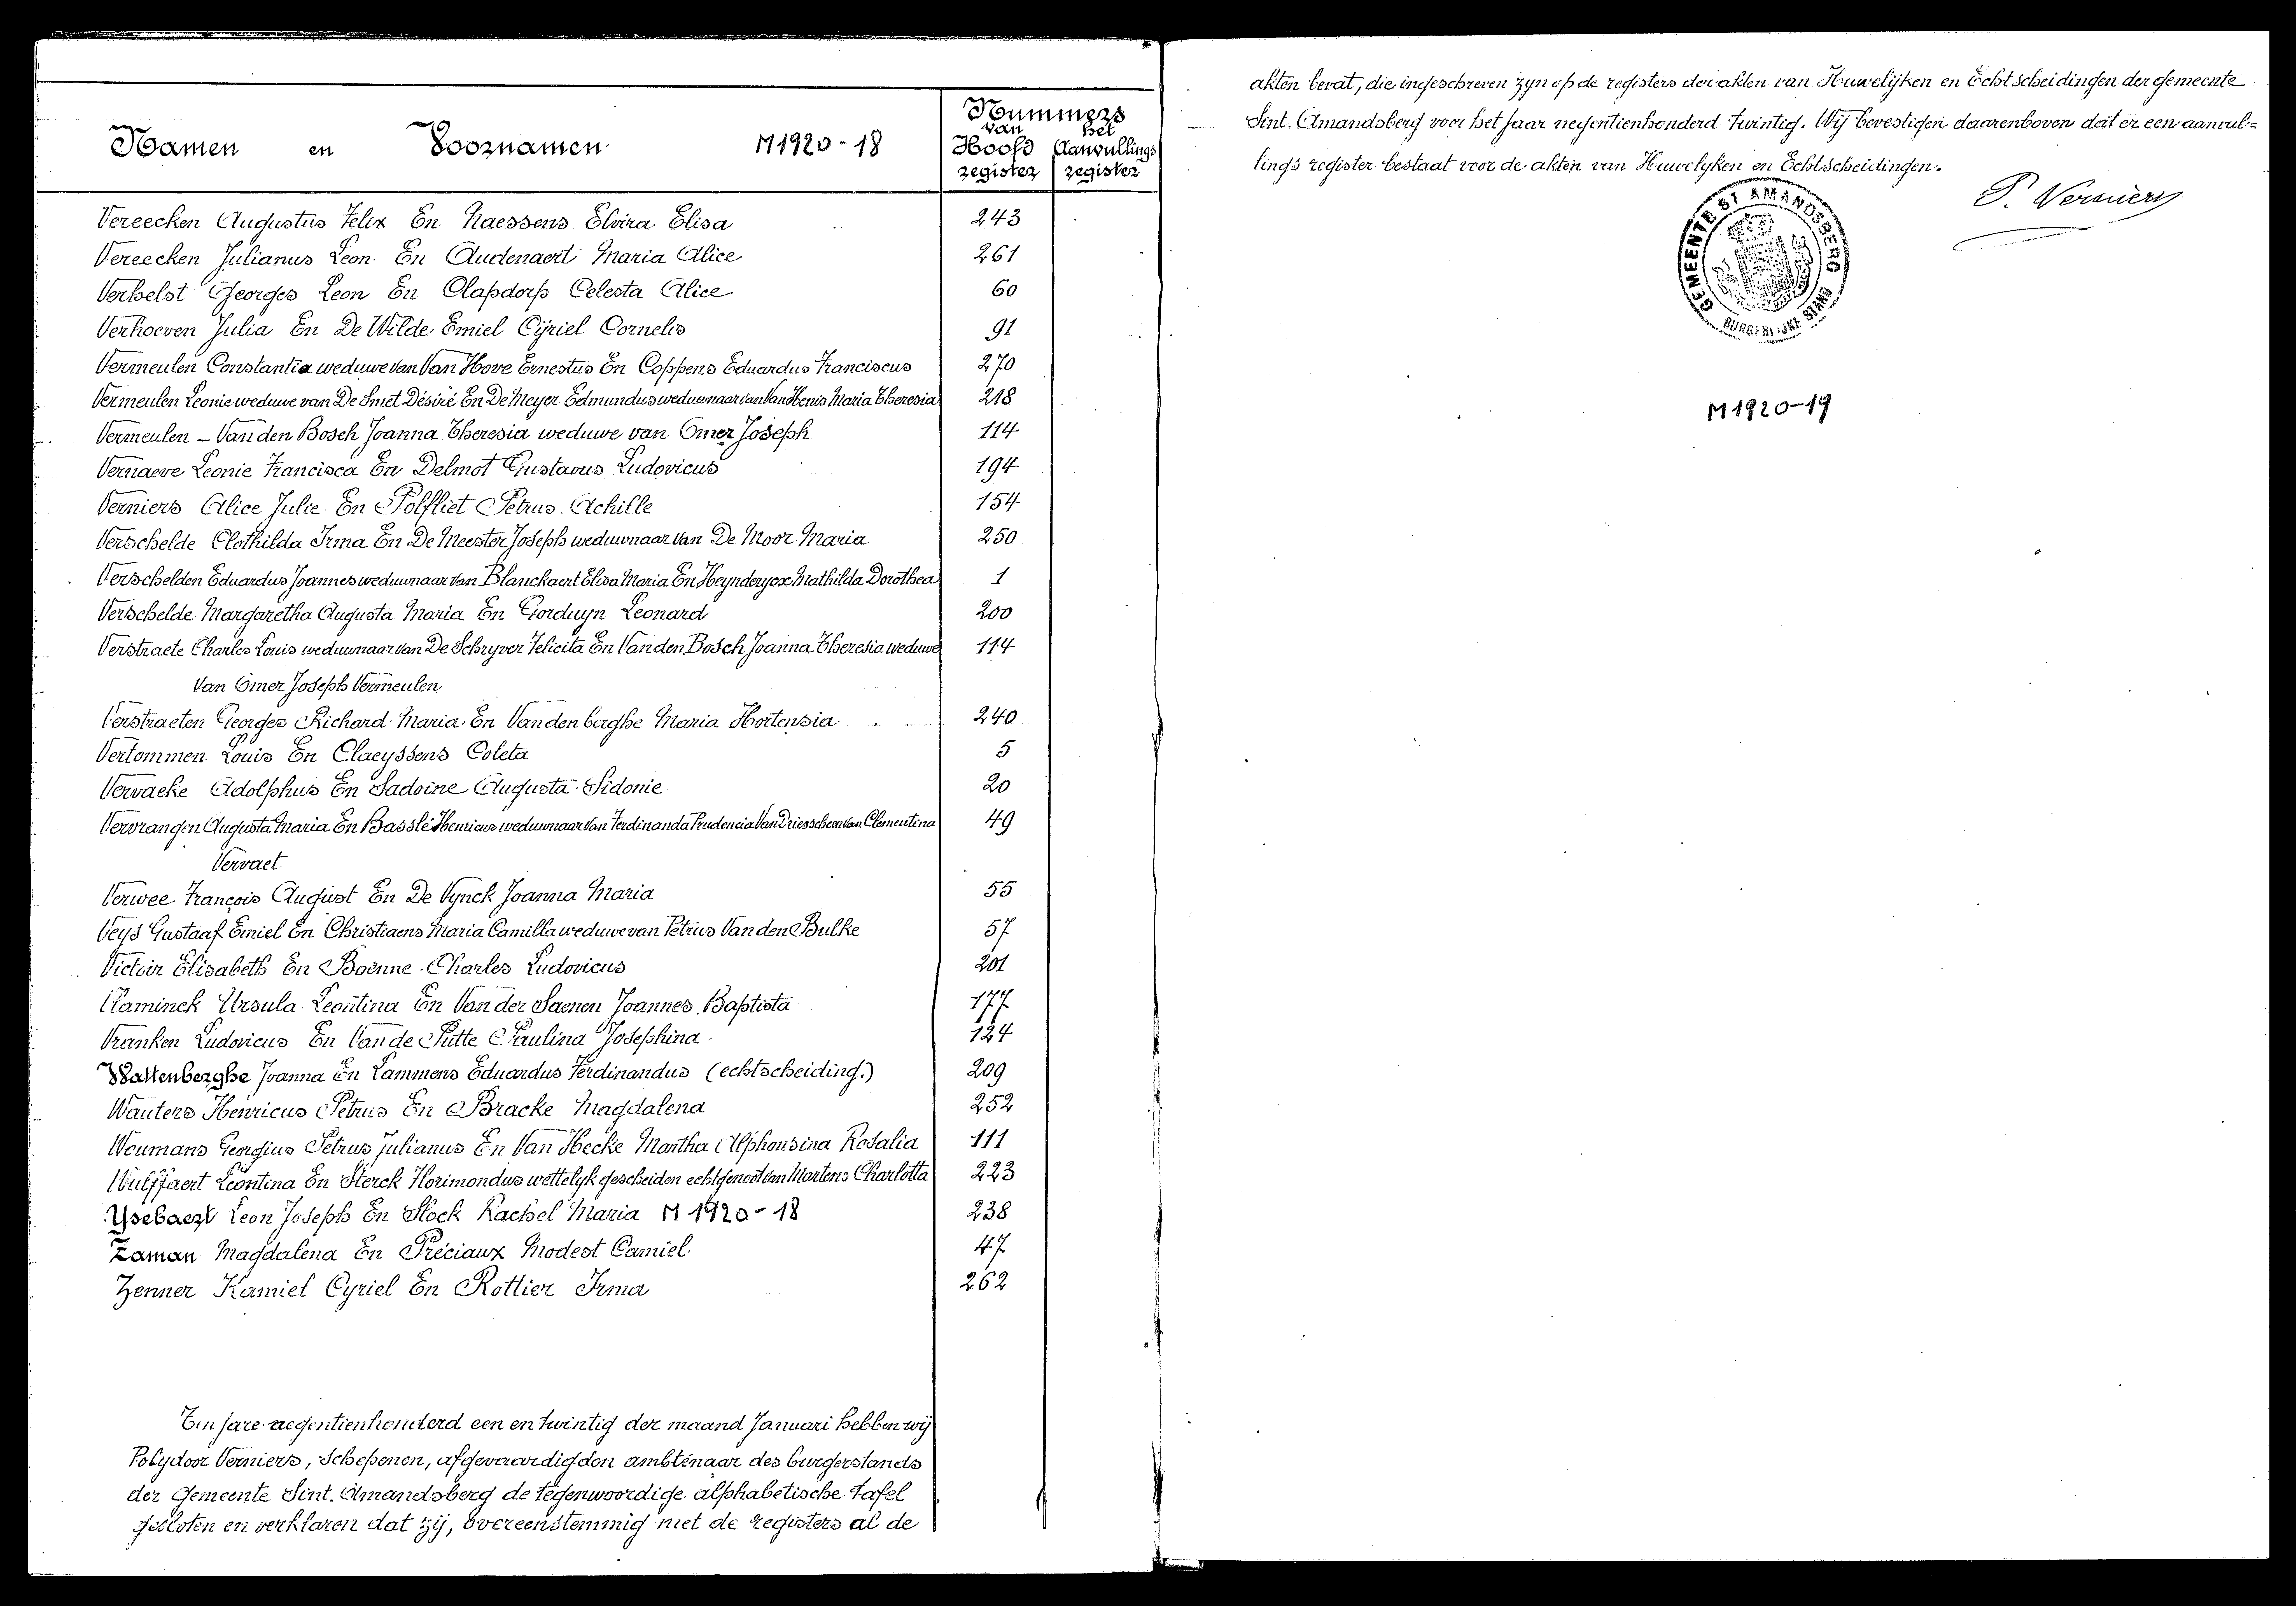 Namen en Voornamen M1920-18 Nummers
van het
Hoofd Aanvullings
register register
Vereecken Augustus Felix En Naessens Elvira Elisa 243
Vereecken Julianus Leon En Audenaert Maria Alice 261
Verhelst Georges Leon En Clapdorp Celesta Alice 60
Verhoeven Julia En De Wilde Emiel Cÿriel Cornelis 91
Vermeulen Constantia weduwe van Van Hove Ernestus En Coppens Eduardus Franciscus 270
Vermeulen Leonie weduwe van De Smet Désiré En De Meyer Edmundus weduwnaar van Maria Theresia 218
Vermeulen – Van den Bosch Joanna Theresia weduwe van Omer Joseph 114
Vernaeve Leonie Francisca En Delmot Gustavus Ludovicus 194
Verniers Alice Julie En Polfliet Petrus Achille 154
Verschelde Clothilda Irma En De Meester Joseph weduwnaar van De Moor Maria 250
Verschelden Eduardus Joannes weduwnaar van Blanckaert Elisa Maria En Heynderyckx Mathilda Dorothea 1
Verschelde Margaretha Augusta Maria En Gorduyn Leonard 200
Verstraete Charles Louis weduwnaar van De Schryver Felicita En Van den Bosch Joanna Theresia weduwe 114
van Omer Joseph Vermeulen
Verstraeten Georges Richard Maria En Van den berghe Maria Hortensia 240
Vertommen Louis En Claeyssens Coleta 5
Vervaeke Adolphus En Sadoine Augusta Sidonie 20
Vervrangen Augusta Maria En Basslé Henricus weduwnaar van Ferdinanda Prudencia Van Driessche en van Clementina 49
Vervaet
Verwee François August En De Vynck Joanna Maria 55
Veys Gustaaf Emiel En Christiaens Maria Camilla weduwe van Petrus Van den Bulke 57
Victoir Elisabeth En Boënne Charles Ludovicus 201
Vlaminck Ursula Leontina En Van der Saenen Joannes Baptista 177
Vranken Ludovicus En Van de Putte Paulina Josephina 124
Wattenberghe Joanna En Lammens Eduardus Ferdinandus (echtscheiding.) 209
Wauters Henricus Petrus En Bracke Magdalena 252
Weumans Georgius Petrus Julianus En Van Hecke Martha Alphonsina Rosalia 111
Wulffaert Leontina En Sterck Florimondus wettelyk gescheiden echtgenoot van Martens Charlotta 223
Ysebaert Leon Joseph En Stock Rachel Maria M1920-18 238
Zaman Magdalena En Préciaux Modest Camiel 47
Zenner Kamiel Cyriel En Rottier Irma 262
Ten jare negentienhonderd een en twintig der maand Januari hebben wij
Polydoor Verniers, Schepenen, afgevaardigden ambtenaar des burgerstands
der Gemeente Sint. Amandsberg de tegenwoordige alphabetische tafel
gesloten en verklaren dat zij, overeenstemmig met de registers al de
akten bevat, die ingeschreven zyn op de registers der akten van Huwelijken en Echtscheidingen der gemeente
Sint. Amandsberg voor het Jaar negentienhonderd twintig. Wij bevestigen daarenboven dat er een aanvul=
lings register bestaat voor de akten van Huwelyken en Echtscheidingen.
P. Verniers
GEMEENTE ST AMANDSBERG
BURGERLIJKE STAND
M1920-19